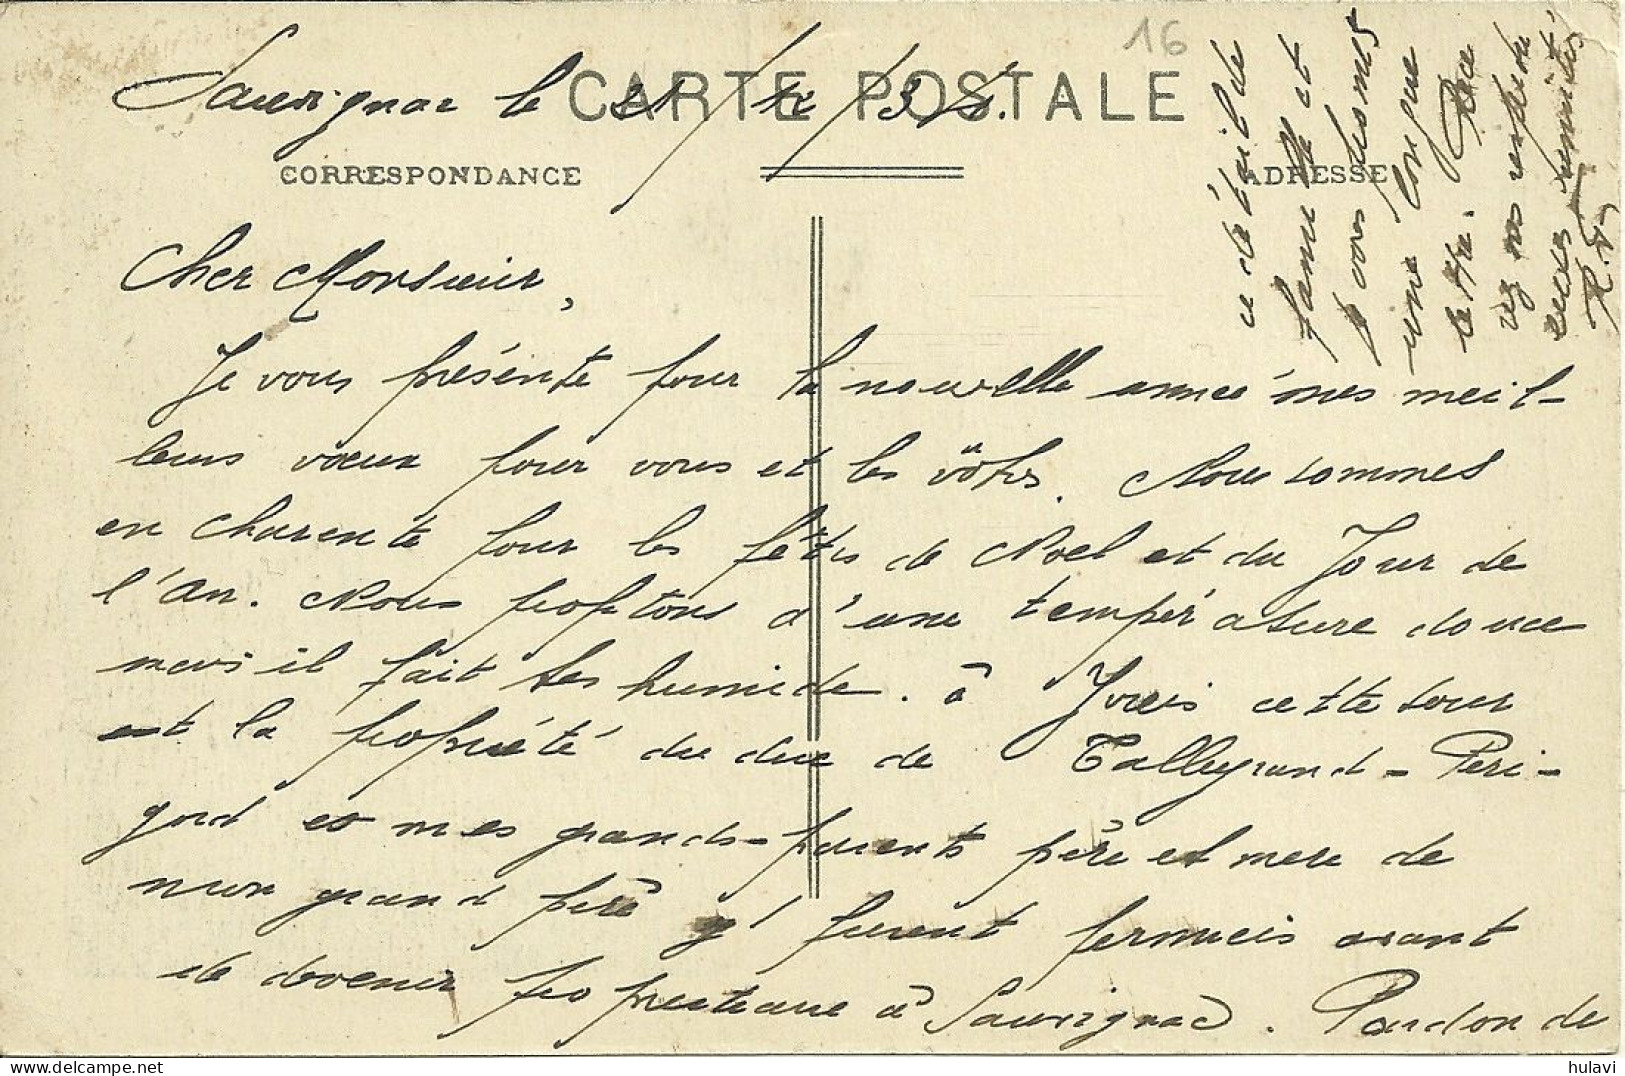 16
Sauvignac le 21/12/34.
CARTE POSTALE
CORRESPONDANCE
ADRESSE
Cher Monsieur,
Je vous présente pour la nouvelle année mes meil-
leurs vœux pour vous et les vôtres. Nous sommes
en Charente pour les fêtes de Noel et du Jour de
l'An. Nous profitons d'une température douce
mais il fait très humide. à Yviers cette tour
est la propriété du duc de Talleyrand-Péri-
gord et mes grands-parents père et mère de
mon grand père y furent fermiers avant
de devenir propriétaire à Sauvignac. Pardon de
ce détail de
famille et
je vous dis mes
une longue
lettre. Rece
vez nos respectu
euses amitiés
hulavi